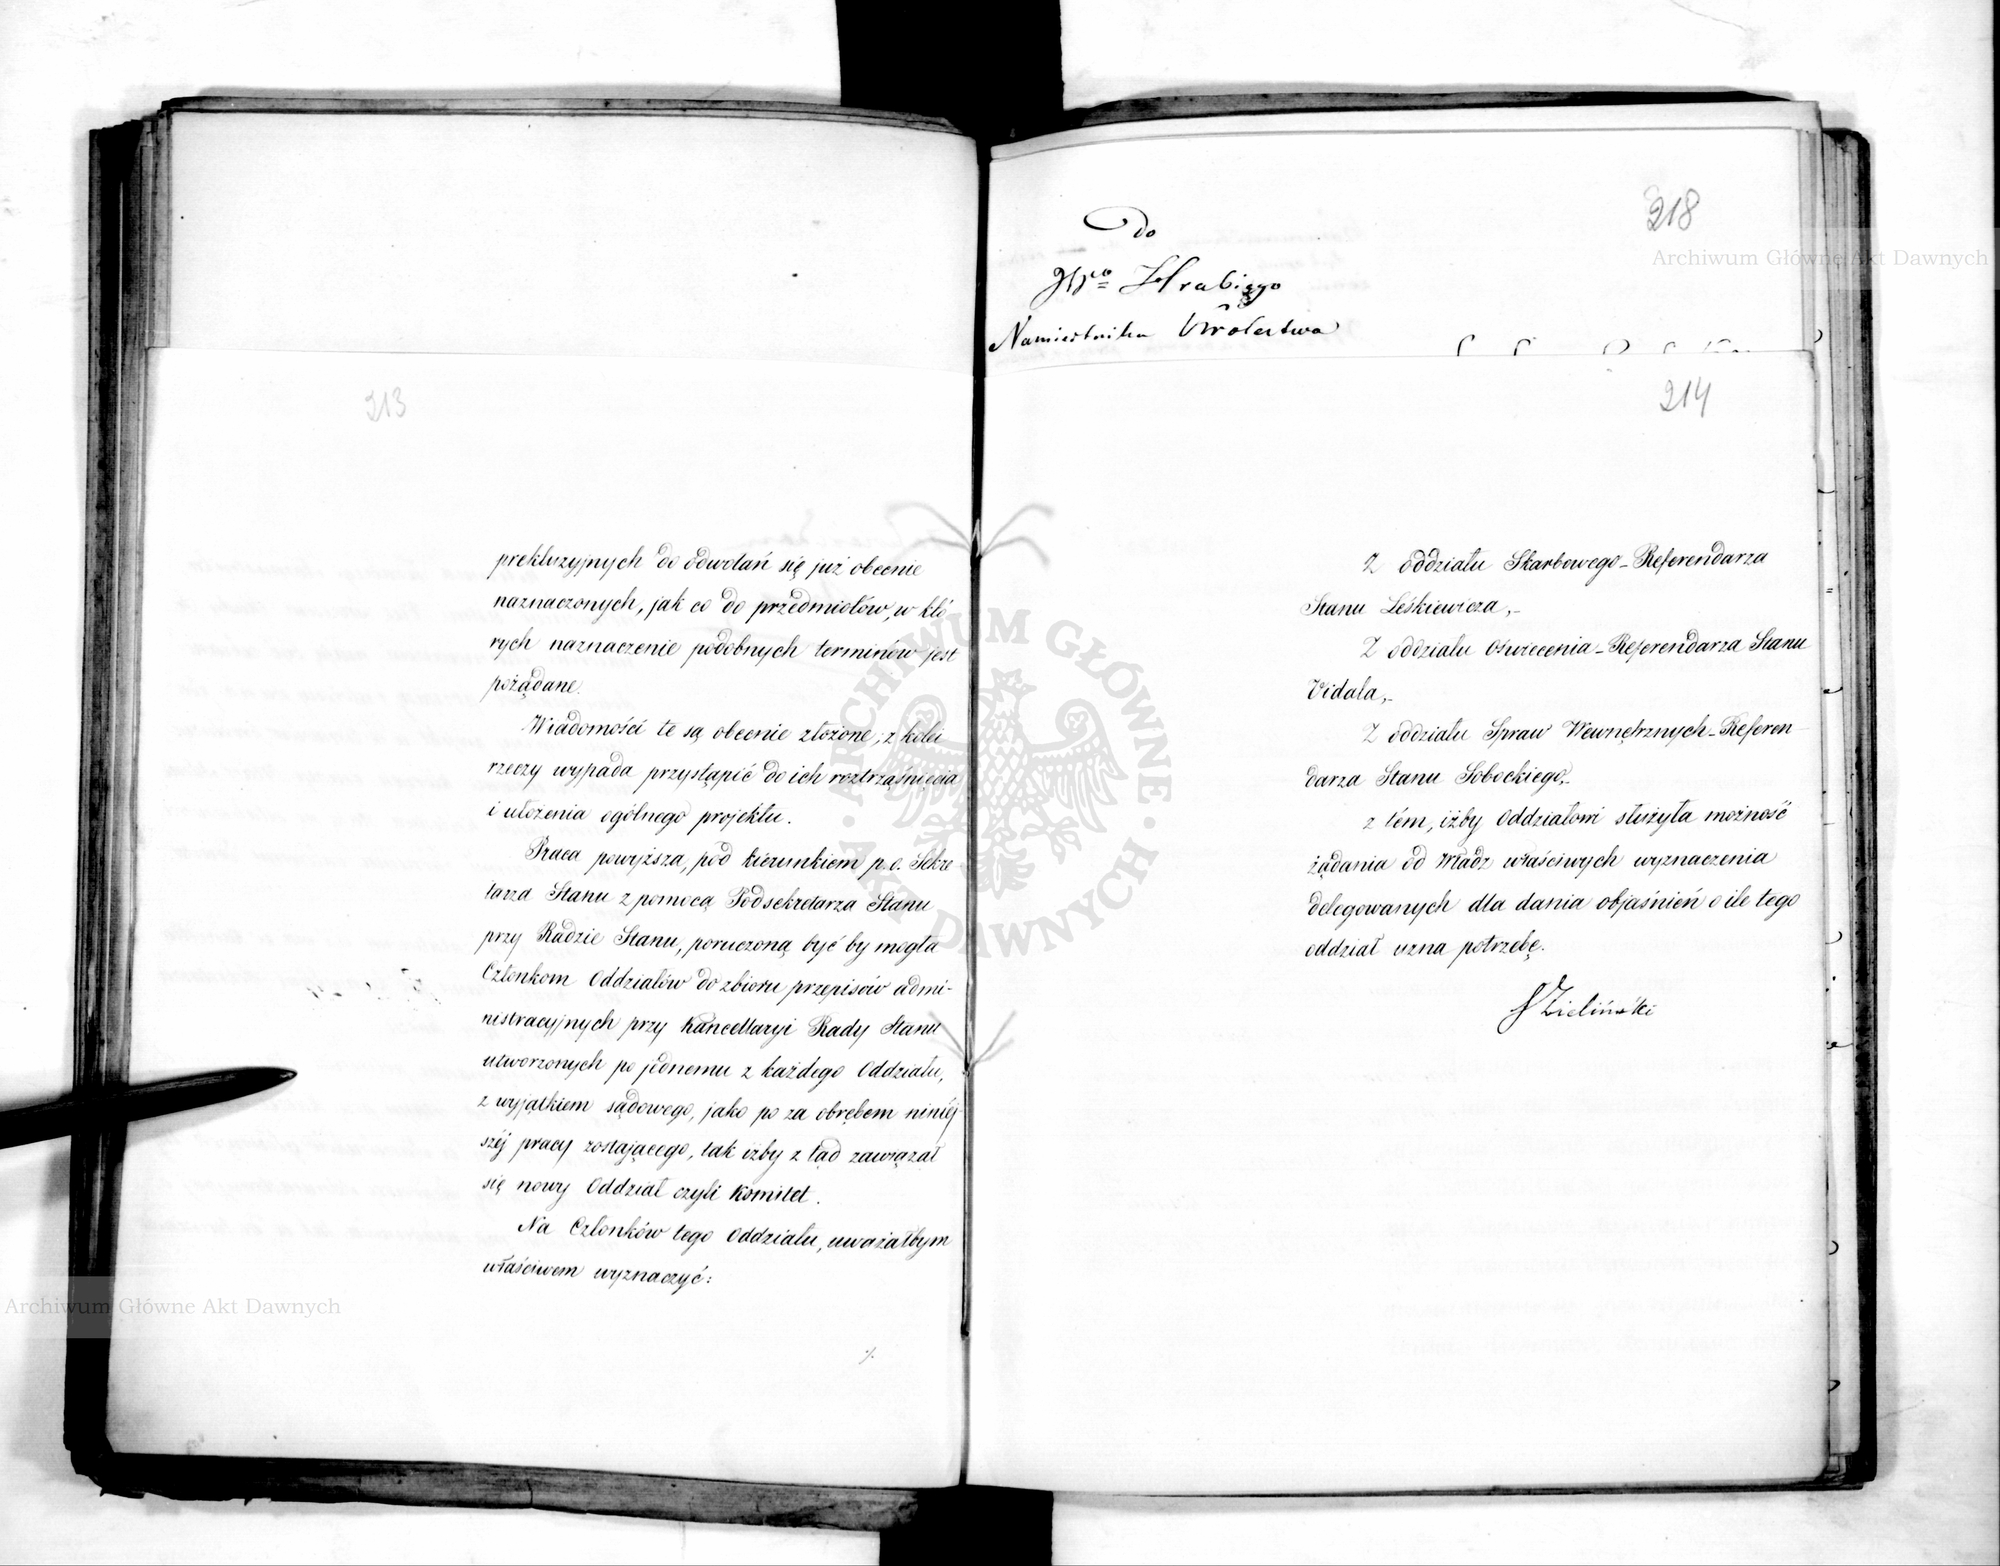 213
prekluzyjnych do odwołań się już obecnie
naznaczonych, jak co do przedmiotów, w któ
rych naznaczenie podobnych terminów jest
pożądane.
Wiadomości te są obecnie złożone; z kolei
rzeczy wypada przystąpić do ich roztrząśnięcia
i ułożenia ogólnego projektu.
Praca powyższa, pod kierunkiem p.o. Sekre
tarza Stanu z pomocą Podsekretarza Stanu
przy Radzie Stanu, poruczoną być by mogła
Członkom Oddziałów do zbioru przepisów admi-
nistracyjnych przy Kancellaryi Rady Stanu
utworzonych po jednemu z każdego Oddziału,
z wyjątkiem sądowego, jako po za obrębem niniéj
széj pracy zostającego, tak iżby z tąd zawiązał
się nowy Oddział czyli Komitet.
Na Członków tego Oddziału, uważałbym
właściwem wyznaczyć:
./.
218
Do
JWo Hrabiego
Namiestnika Królestwa
214
Z oddziału Skarbowego - Referendarza
Stanu Leśkiewicza,-
Z oddziału Oświecenia - Referendarza Stanu
Vidala,-
Z oddziału Spraw Wewnętrznych - Referen-
darza Stanu Sobockiego,-
z tém, iżby Oddziałowi służyła możność
żądania od Władz właściwych wyznaczenia
delegowanych dla dania objaśnień o ile tego
oddział uzna potrzebę.
JZieliński
Archiwum Główne Akt Dawnych
Archiwum Główne Akt Dawnych
ARCHIWUM GŁÓWNE
AKT DAWNYCH